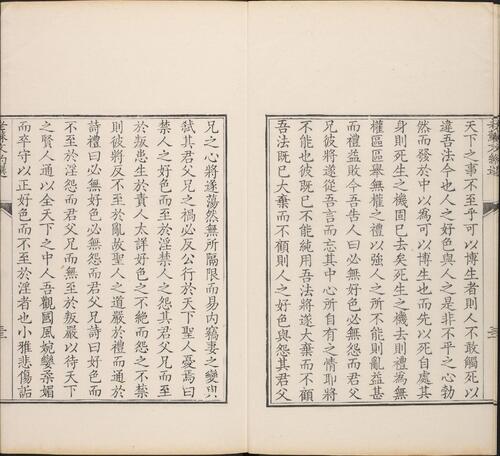 天下之事不至乎可以博生者則人不敢觸死以
違吾法今也人之好色與人之是非不平之心勃
然而發於中以為可以博生也而先以死自處其
身則死生之機固已去矣死生之機去則禮為無
權區區舉無權之禮以強人之所不能則亂益甚
而禮益敗今吾告人曰必無好色必無怨而君父
兄彼將遂從吾言而忘其中心所自有之情耶將
不能也彼既已不能純用吾法將遂大棄而不顧
吾法既已大棄而不顧則人之好色與怨其君父
兄之心將遂蕩然無所隔限而易內竊妻之變與
弒其君父兄之禍必反公行於天下聖人憂焉曰
禁人之好色而至於淫禁人之怨其君父兄而至
於叛患生於責人太詳好色之不絕而怨之不禁
則彼將反不至於亂故聖人之道嚴於禮而通於
詩禮曰必無好色必無怨而君父兄詩曰好色而
不至於淫怨而君父兄而無至於叛嚴以待天下
之賢人通以全天下之中人吾觀國風婉孌柔媚
而卒守以正好色而不至於淫者也小雅悲傷詬